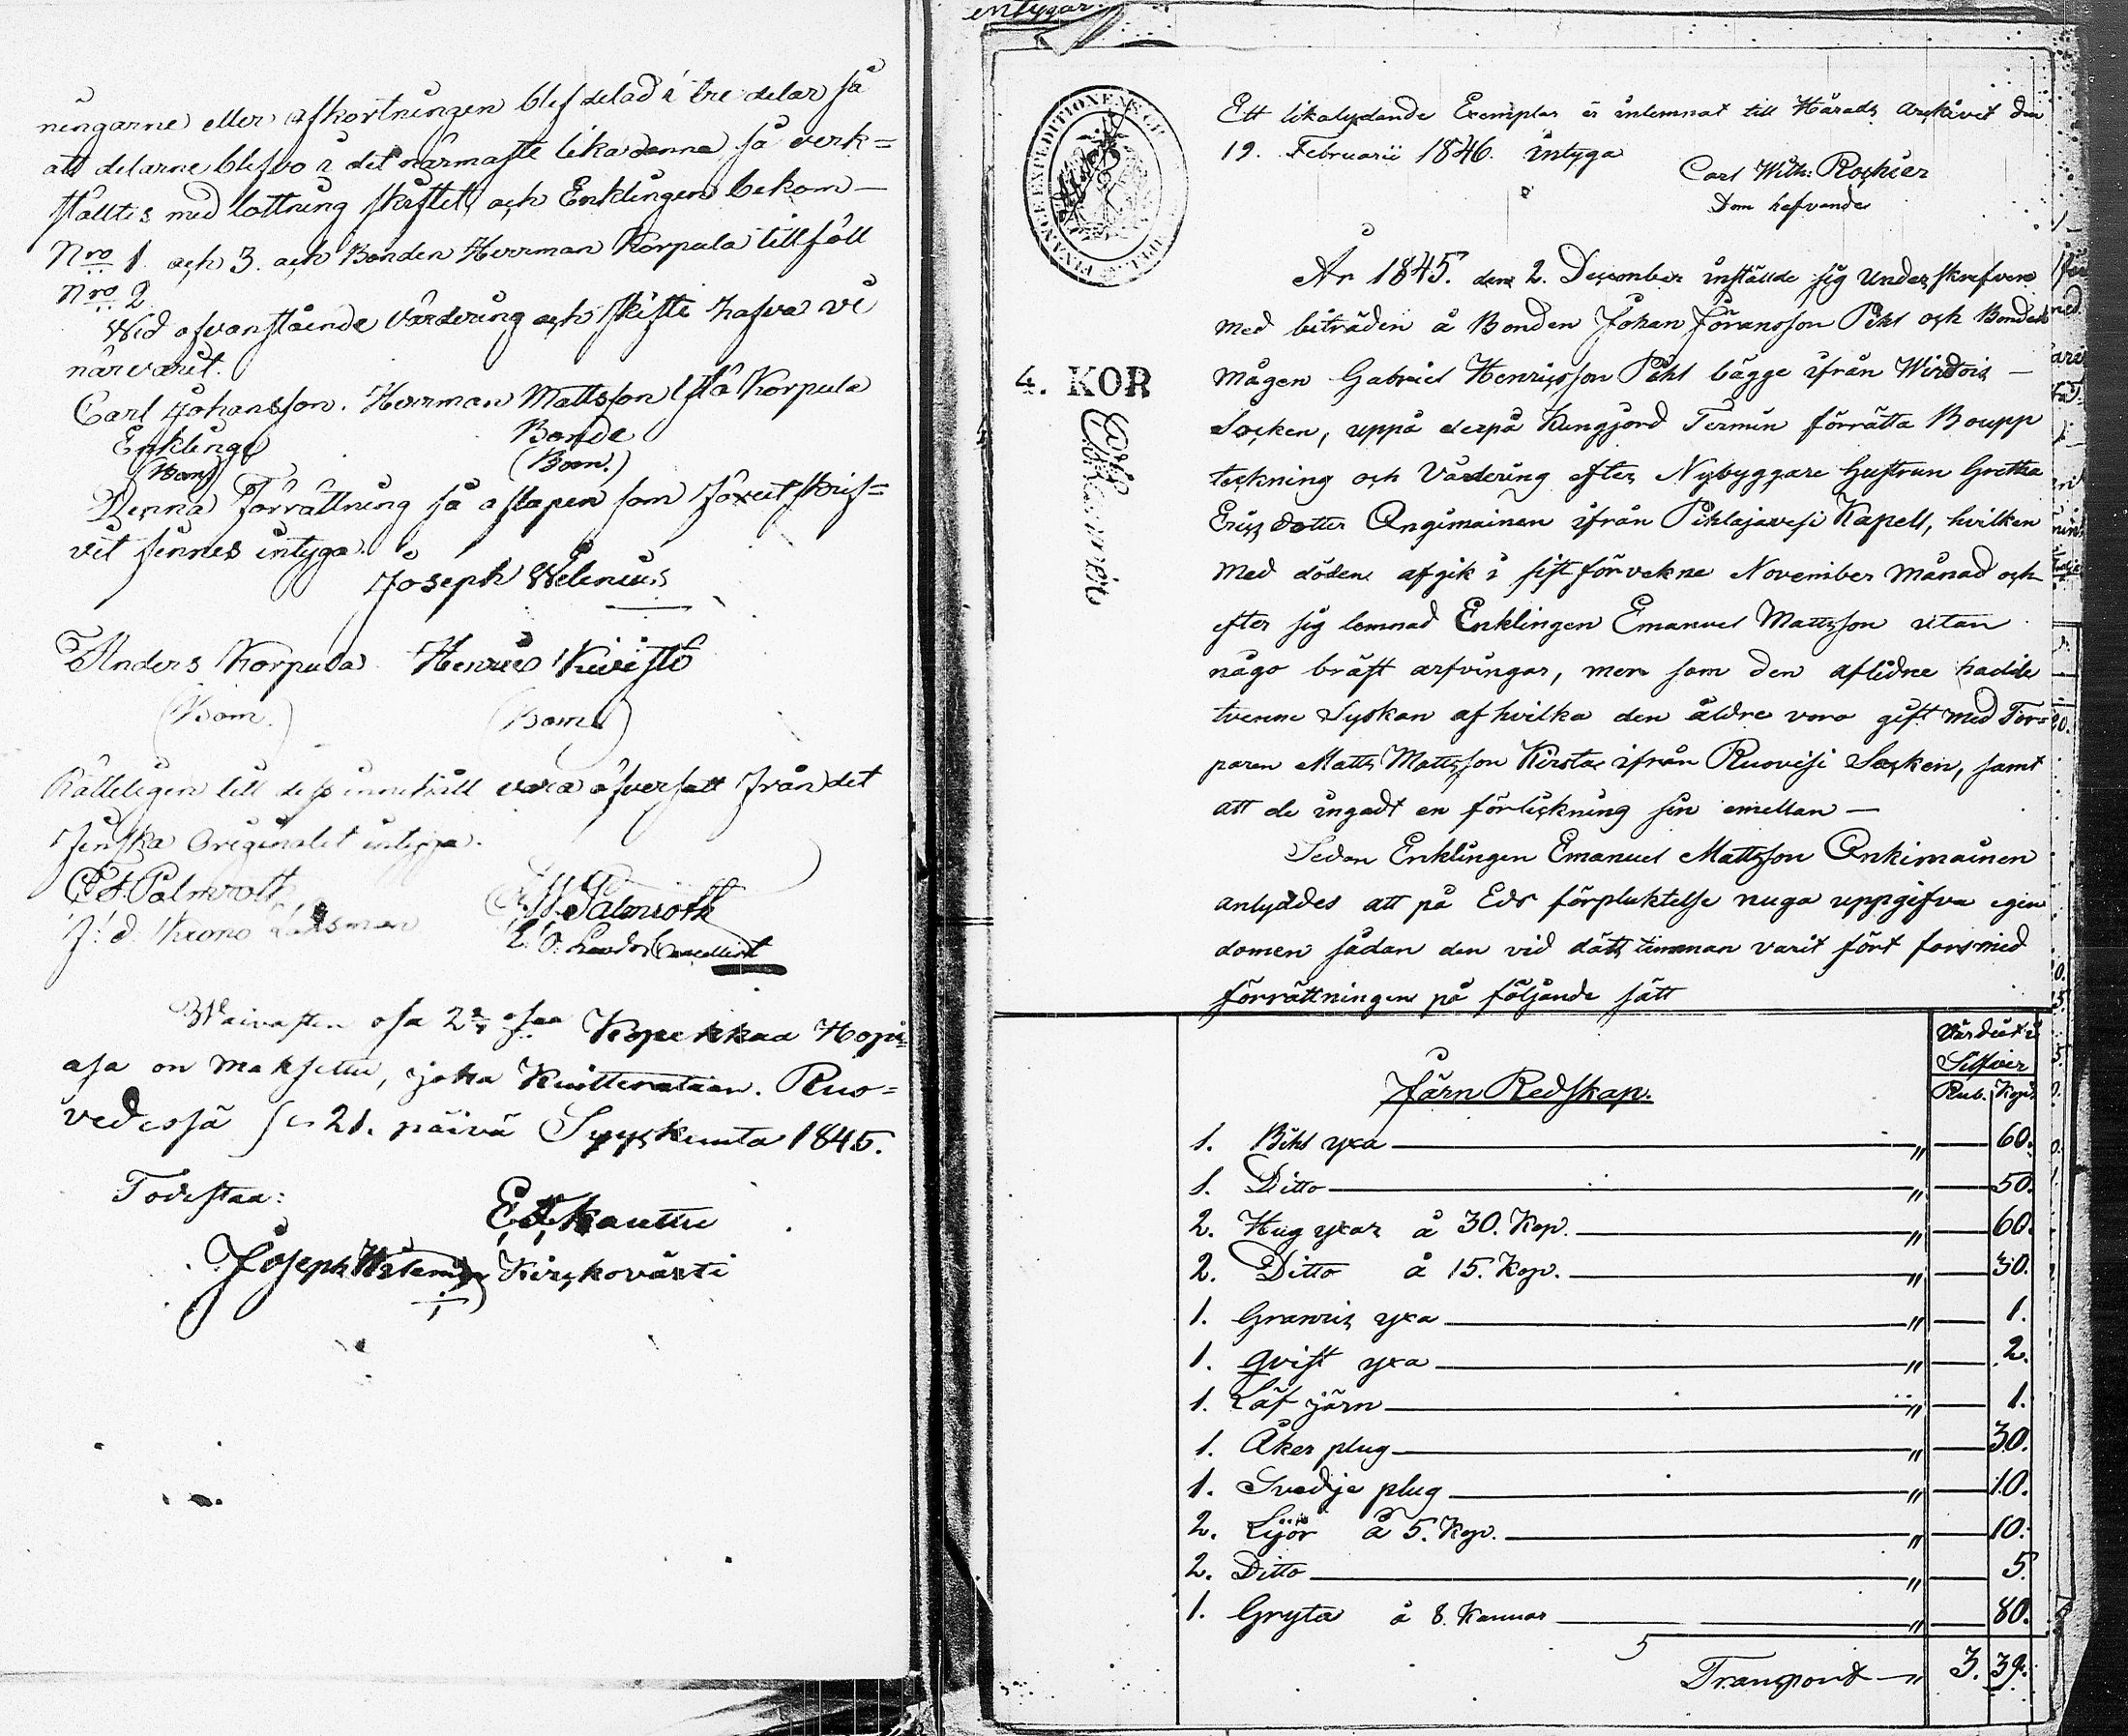 ningarne eller afkortningen blef delad i tre delar så
att delarne blefvo i det närmaste lika denna så verk=
ställtes med lottning skiftet, och Enklingen bekom—
Nro 1. och 3. och Bonden Herrman Korpula tillföll
Nro 2
Wid ofvanstående värdering och skifte hafva vi
närvarit.
Carl Johansson. Herrman Mattsson Korpula
Enkling Bonde
(Bom) (Bom.)
Denna Förrättning så aflapen som förut skrif=
vit finnes intyga.
Joseph Welenius
Anders Korpula Henric Kivistö
(Bom.) (Bom.)
Rätteligen till dess innehåll vara öfversatt från det
finska originalet intyga.
C. F. Palmroth
Palmroth
Krono Länsman
Cancellist
Waivasten osa 2 Kopekkaa Hopi=
asa on maksettu, joka Kuitterataan. Ruo=
vedessä se 21. päivä Syyskuuta 1845.
Todistaa:
E. F. Kauttu
Joseph Welenius Kirckovärti
entygar.
EXPEDITIONEN
FINANCE
Ett likalydande Exemplar är inlemnat till Härads Arkivet den
19. Februarii 1846. intyga
Carl Wilh: Roschier
Dom hafvande
År 1845. den 2. December instälde sig Underskrefvne
med biträden å Bonden Johan Jöransson Pihl och Bonde
mågen Gabriel Henricsson Pihl bägge ifrån Wirdois —
Socken, uppå derpå Kungjord Termin förrätta Boupp
teckning och Värdering efter Nybyggare Hustrun Gretha
Ericsdotter Ongimainen ifrån Pihlajavesi Kapell, hvilken
Med döden afgik i sistförvekne November månad och
efter sig lemnad Enklingen Emanuel Mattsson utan
någo bröst arfvingar, men som den aflidne hadde
tvenne Syskon af hvilka den äldre vora gift med Tor=
paren Matts Mattsson Kirsta ifrån Ruovisi Socken, samt
att de ingådt en förlickning sin emellan —
Sedan Enklingen Emanuel Mattsson Onkimainen
anlyddes att på Eds förpliktelse nuga uppgifva egen
domen sådan den vid dätts timman varit fört fors med
förrättningen på följande sätt
4. KOR
Värdiet i
Silfver
Rub. Kop.
Järn Redskap.
1. Bihl yxa — „ — 60.
1. Ditto — „ — 50.
2. Hug yxar å 30. Kop. — „ — 60.
2. Ditto å 15. Kop. — „ — 30.
1. Granris yxa — „ — 1.
1. Qvist yxa — „ — 2.
1. Löf järn — „ — 1.
1. Åker plug — „ — 30.
1. Svedje plug — „ — 10.
2. Lijör å 5. Kop. — „ — 10.
2. Ditto — „ — 5.
1. Gryta å 8. Kannor — „ — 80.
5
Transport — „ 3. 39.